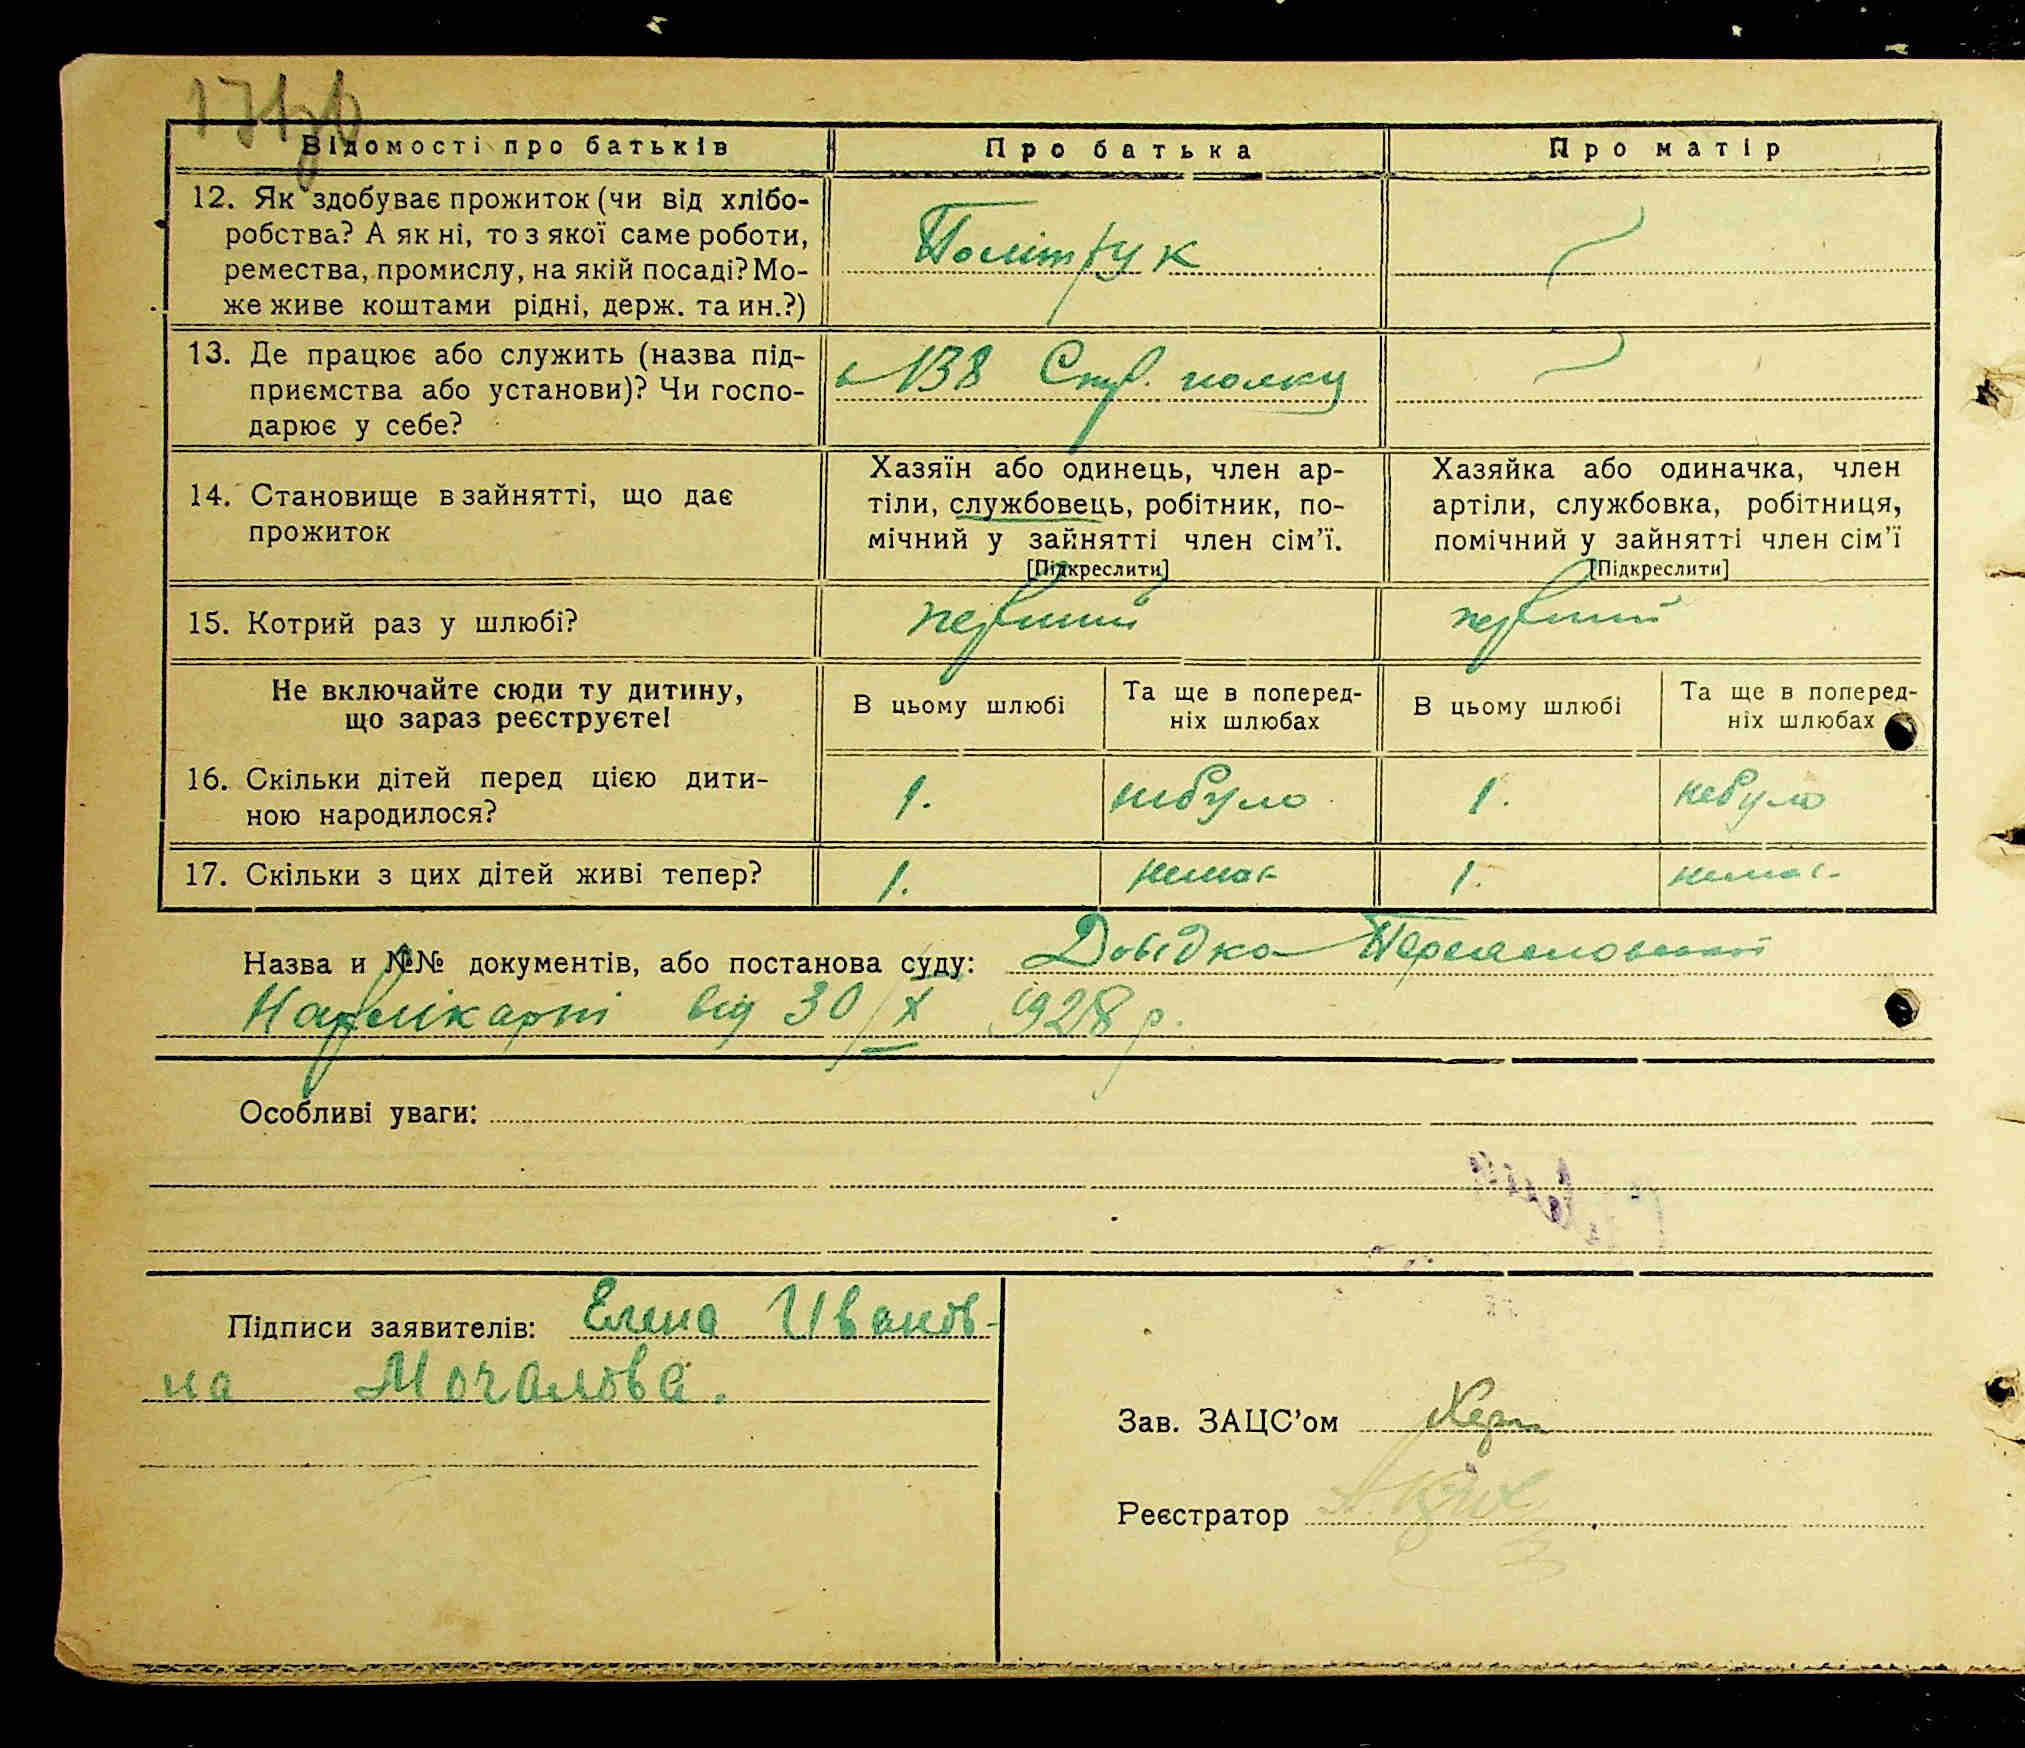 171зв
Відомості про батьків
Про батька
Про матір
12. Як здобуває прожиток (чи від хлібо-
робства? А як ні, то з якої саме роботи,
ремества, промислу, на якій посаді? Мо-
же живе коштами рідні, держ. та ин.?)
Політрук
13. Де працює або служить (назва під-
приємства або установи)? Чи госпо-
дарює у себе?
в 138 Стр. полку
14. Становище в зайнятті, що дає
прожиток
Хазяїн або одинець, член ар-
тіли, службовець, робітник, по-
мічний у зайнятті член сім'ї.
[Підкреслити]
Хазяйка або одиначка, член
артіли, службовка, робітниця,
помічний у зайнятті член сім'ї
[Підкреслити]
15. Котрий раз у шлюбі?
первший
первший
Не включайте сюди ту дитину,
що зараз реєструєте!
В цьому шлюбі
Та ще в поперед-
ніх шлюбах
В цьому шлюбі
Та ще в поперед-
ніх шлюбах
16. Скільки дітей перед цією дити-
ною народилося?
1.
небуло
1.
небуло
17. Скільки з цих дітей живі тепер?
1.
немає
1.
немає
Назва и №№ документів, або постанова суду: Довідка Переясловської
Нарлікарні від 30/X 1928 р.
Особливі уваги:
Підписи заявителів: Елена Иванов-
на Мочалова.
Зав. ЗАЦС'ом
Реєстратор